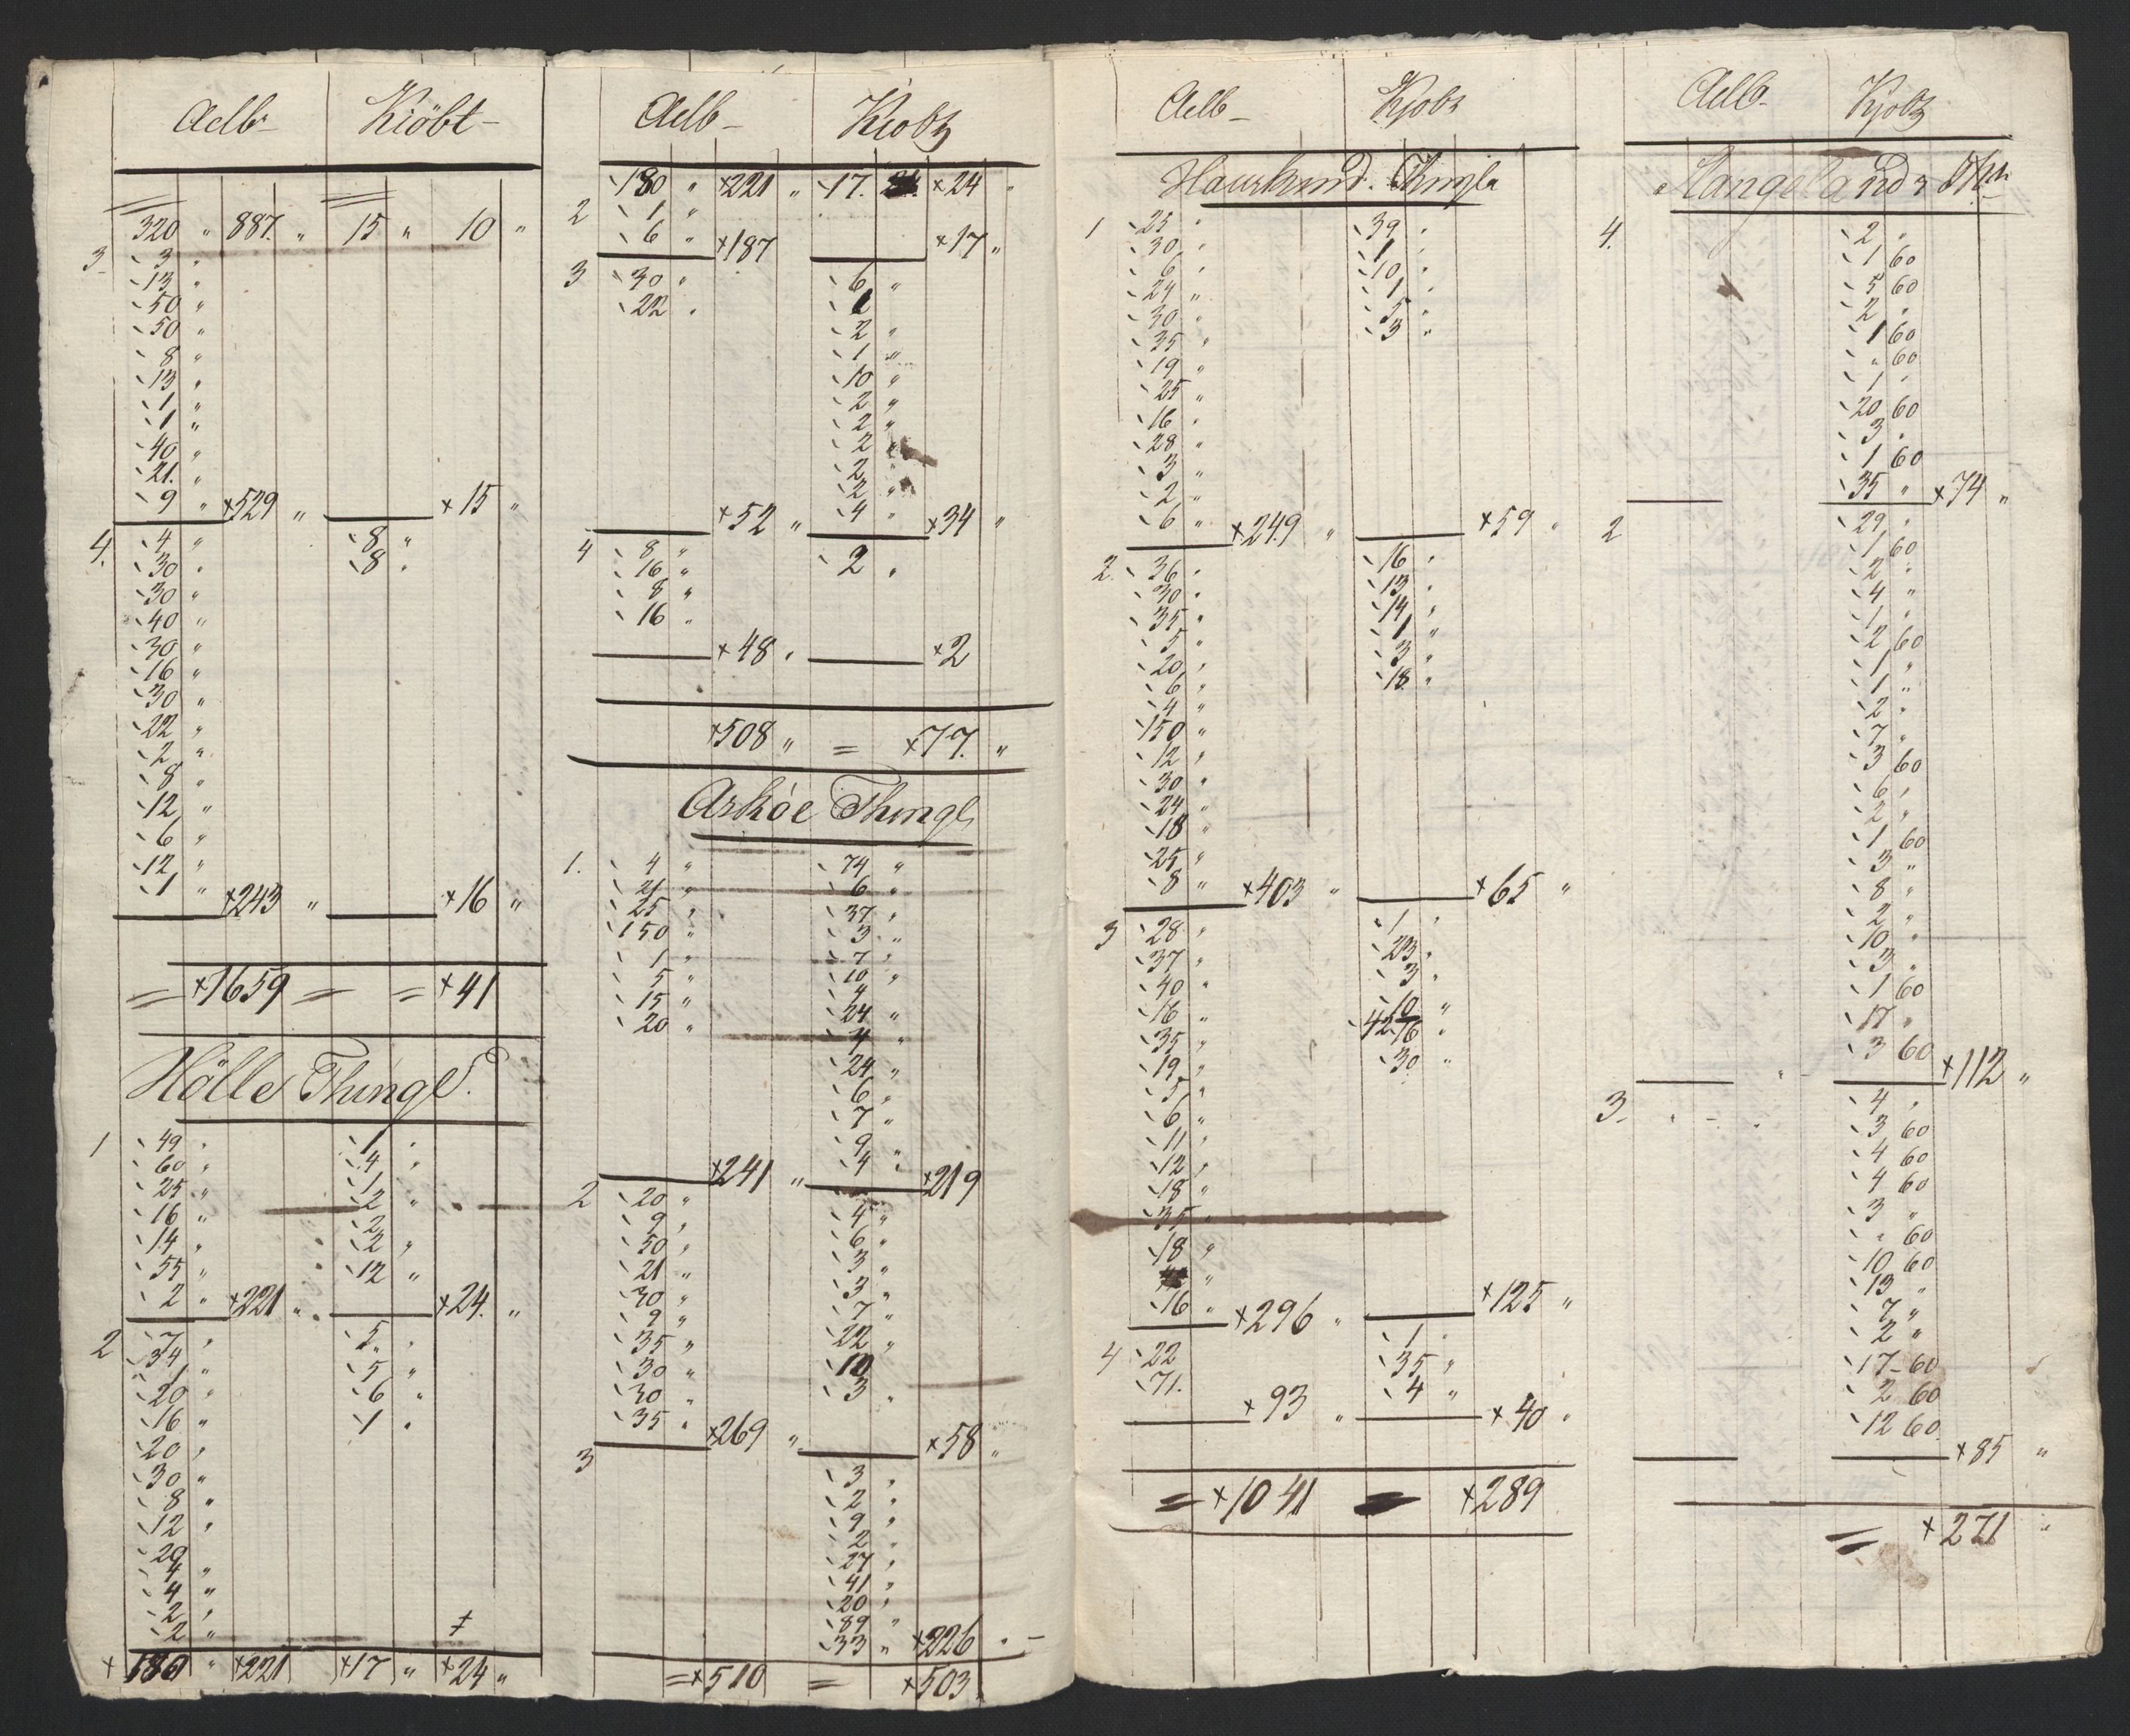 Aelb- Kiöbt-
320 " 887. " 15 " 10 "
3 3 "
13 "
50 "
50 "
8 "
13 "
1 "
1 "
40 "
21. "
9 " ×529 " ×15 "
4. 4 " 8 "
30 " 8 "
30 "
40 "
30 "
16 "
30 "
22 "
2 "
8 "
12 "
6 "
12 "
1 " ×243 " ×16 "
= ×1659 = = ×41
Hölle Thingl.
1 49 " 1 "
60 " 4 "
25 " 1
16 " 2 "
14 " 2
55 " 2 "
2 " ×221 " 12 " ×24. "
2 7 " 5 "
34 " 5 "
1 " 6 "
20 " 1 "
16 "
20 "
30 "
8 "
12 "
20
4 "
4 "
2 "
2 "
× 180 " ×221 ×17 " ×24 "
Aelb- Kiobt
180 " ×221 " 17. ×24 "
2 1 "
6 " ×187 ×17 "
3 30 " 6 "
22 " 1
2 "
1 "
10 "
2 "
2 "
2 "
2 "
2 "
×52 " 4 " ×34 "
4 8 " 2 "
16 "
8 "
16 "
×48 " ×2
×508 " = ×77. "
Askøe Thingl
1. 4 " 74 "
21 " 6 "
25 " 37 "
150 " 3 "
1 " 7 "
5 " 10 "
15 " 4
20 " 24 "
4 "
24 "
6 "
7 "
9 "
×241 " 4 " ×219
2 20 " 4 "
9 " 6 "
50 " 3 "
21 " 3 "
30 " 7 "
9 " 22 "
35 " 10
30 " 3 "
30 "
35 " ×269 " ×58 "
3 3 "
2 "
9 "
2 "
27 "
41 "
20 "
89 "
33 " ×226 " -
=×510 = ×503
Aelb- Kjobt
Hauslund. Thingla
1 25 " 39 "
30 " 1 "
6 " 10 "
24 " 1 "
30 " 5 "
35 " 3 "
19 "
25 "
16 "
28 "
3 "
2 "
6 " ×249 " ×59 "
2. 36 " 16 "
30 " 13 "
35 " 14 "
5 " 1 "
20 " 3 "
6 " 18 "
4 "
150 "
12 "
30 "
24 "
18 "
25 "
8 " ×403 " ×65 "
3 28 " 1 "
37 " 23 "
40 " 3 "
16 " 10 "
35 "
19 " 30 "
5 "
6 "
11 "
12 "
18 "
35 "
18 "
16 " ×296 " ×125 "
4 22 1 "
71. 35 "
×93 " 4 " ×40 "
= ×1041 = ×289
Aelb- Kjobt
4. 2 "
1 60
5 60
2 "
1 60
" 60
1 "
20 60
3 "
1 60
35 " ×74 "
2 29 "
1 60
2 "
4 "
1 "
2 60
1 "
1 "
2 "
7 "
3 60
6 "
2 "
1 60
3 "
8 "
2 "
10 "
3 "
1 60
17 "
3 60 ×112 "
3. 4 "
3 60
4 60
4 60
3 "
" 60
10 60
13 "
7 "
2 "
17 60
2 60
12 60
×85 "
= ×271 "